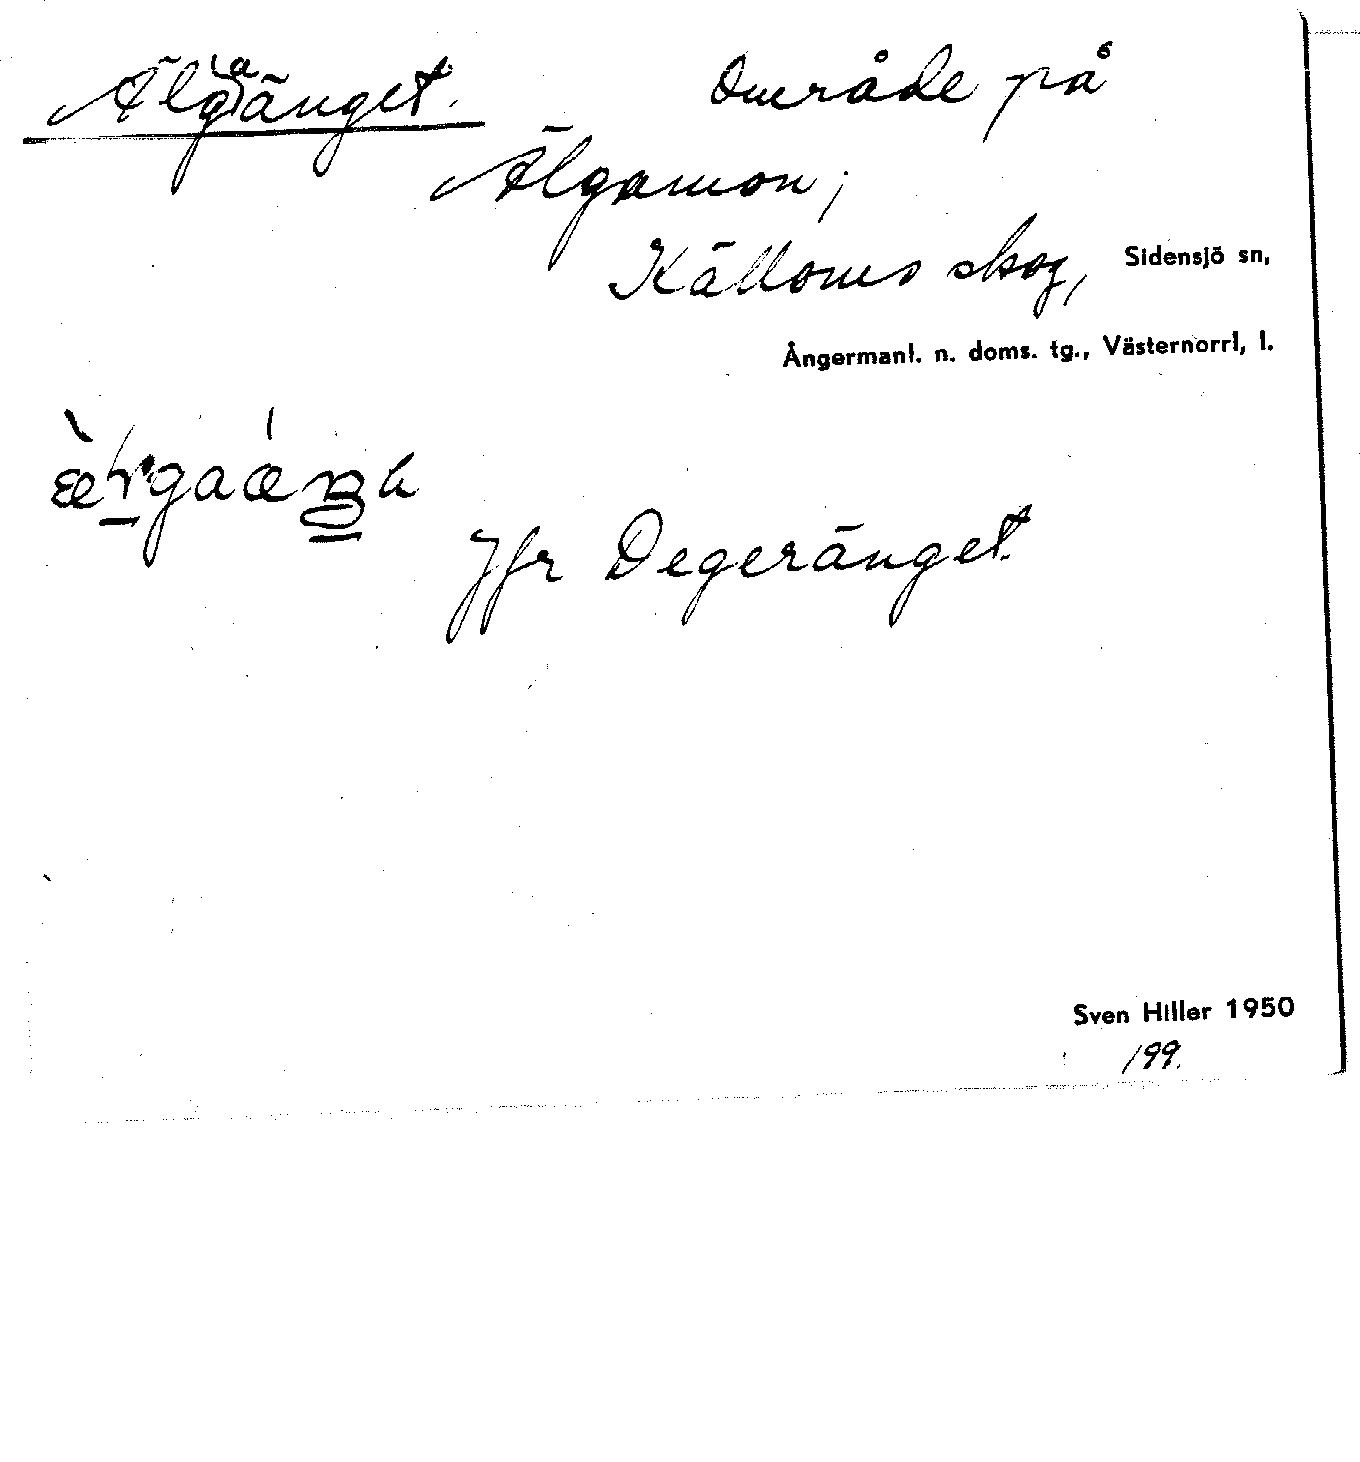 Älg(a)änget. Område på
Älgamon;
Källoms skog, Sidensjö sn,
Ångermanl. n. doms. tg., Västernorrl, l.
Jfr Degeränget.
Sven Hiller 1950
199.